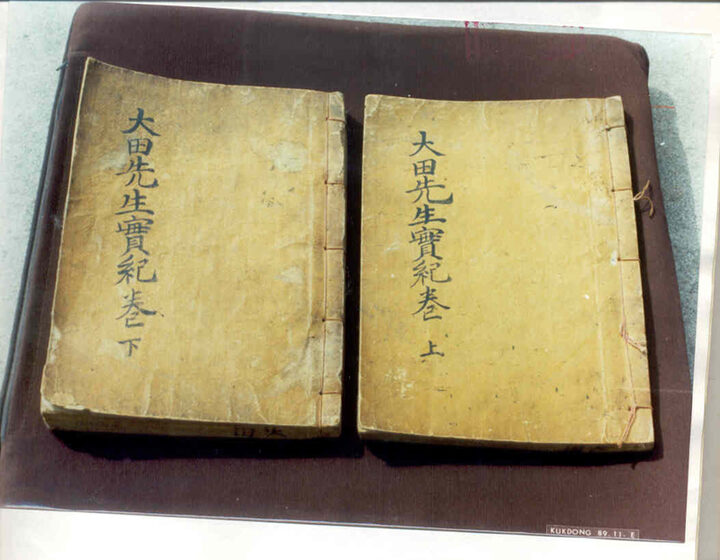 大田先生實紀卷 上
大田先生實紀卷 下
KUKDONG 89.11. E